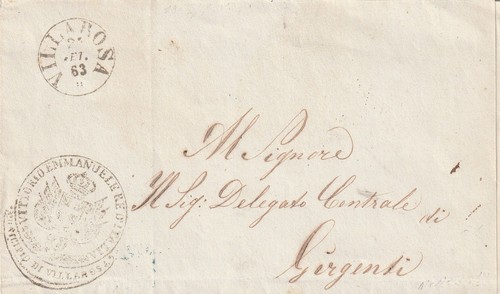 VILLAROSA
SET.
63
Al Signore
Il Sig: Delegato Centrale
di
Girgenti
VITTORIO EMMANUELE RE D'ITALIA
DI VILLAROSA